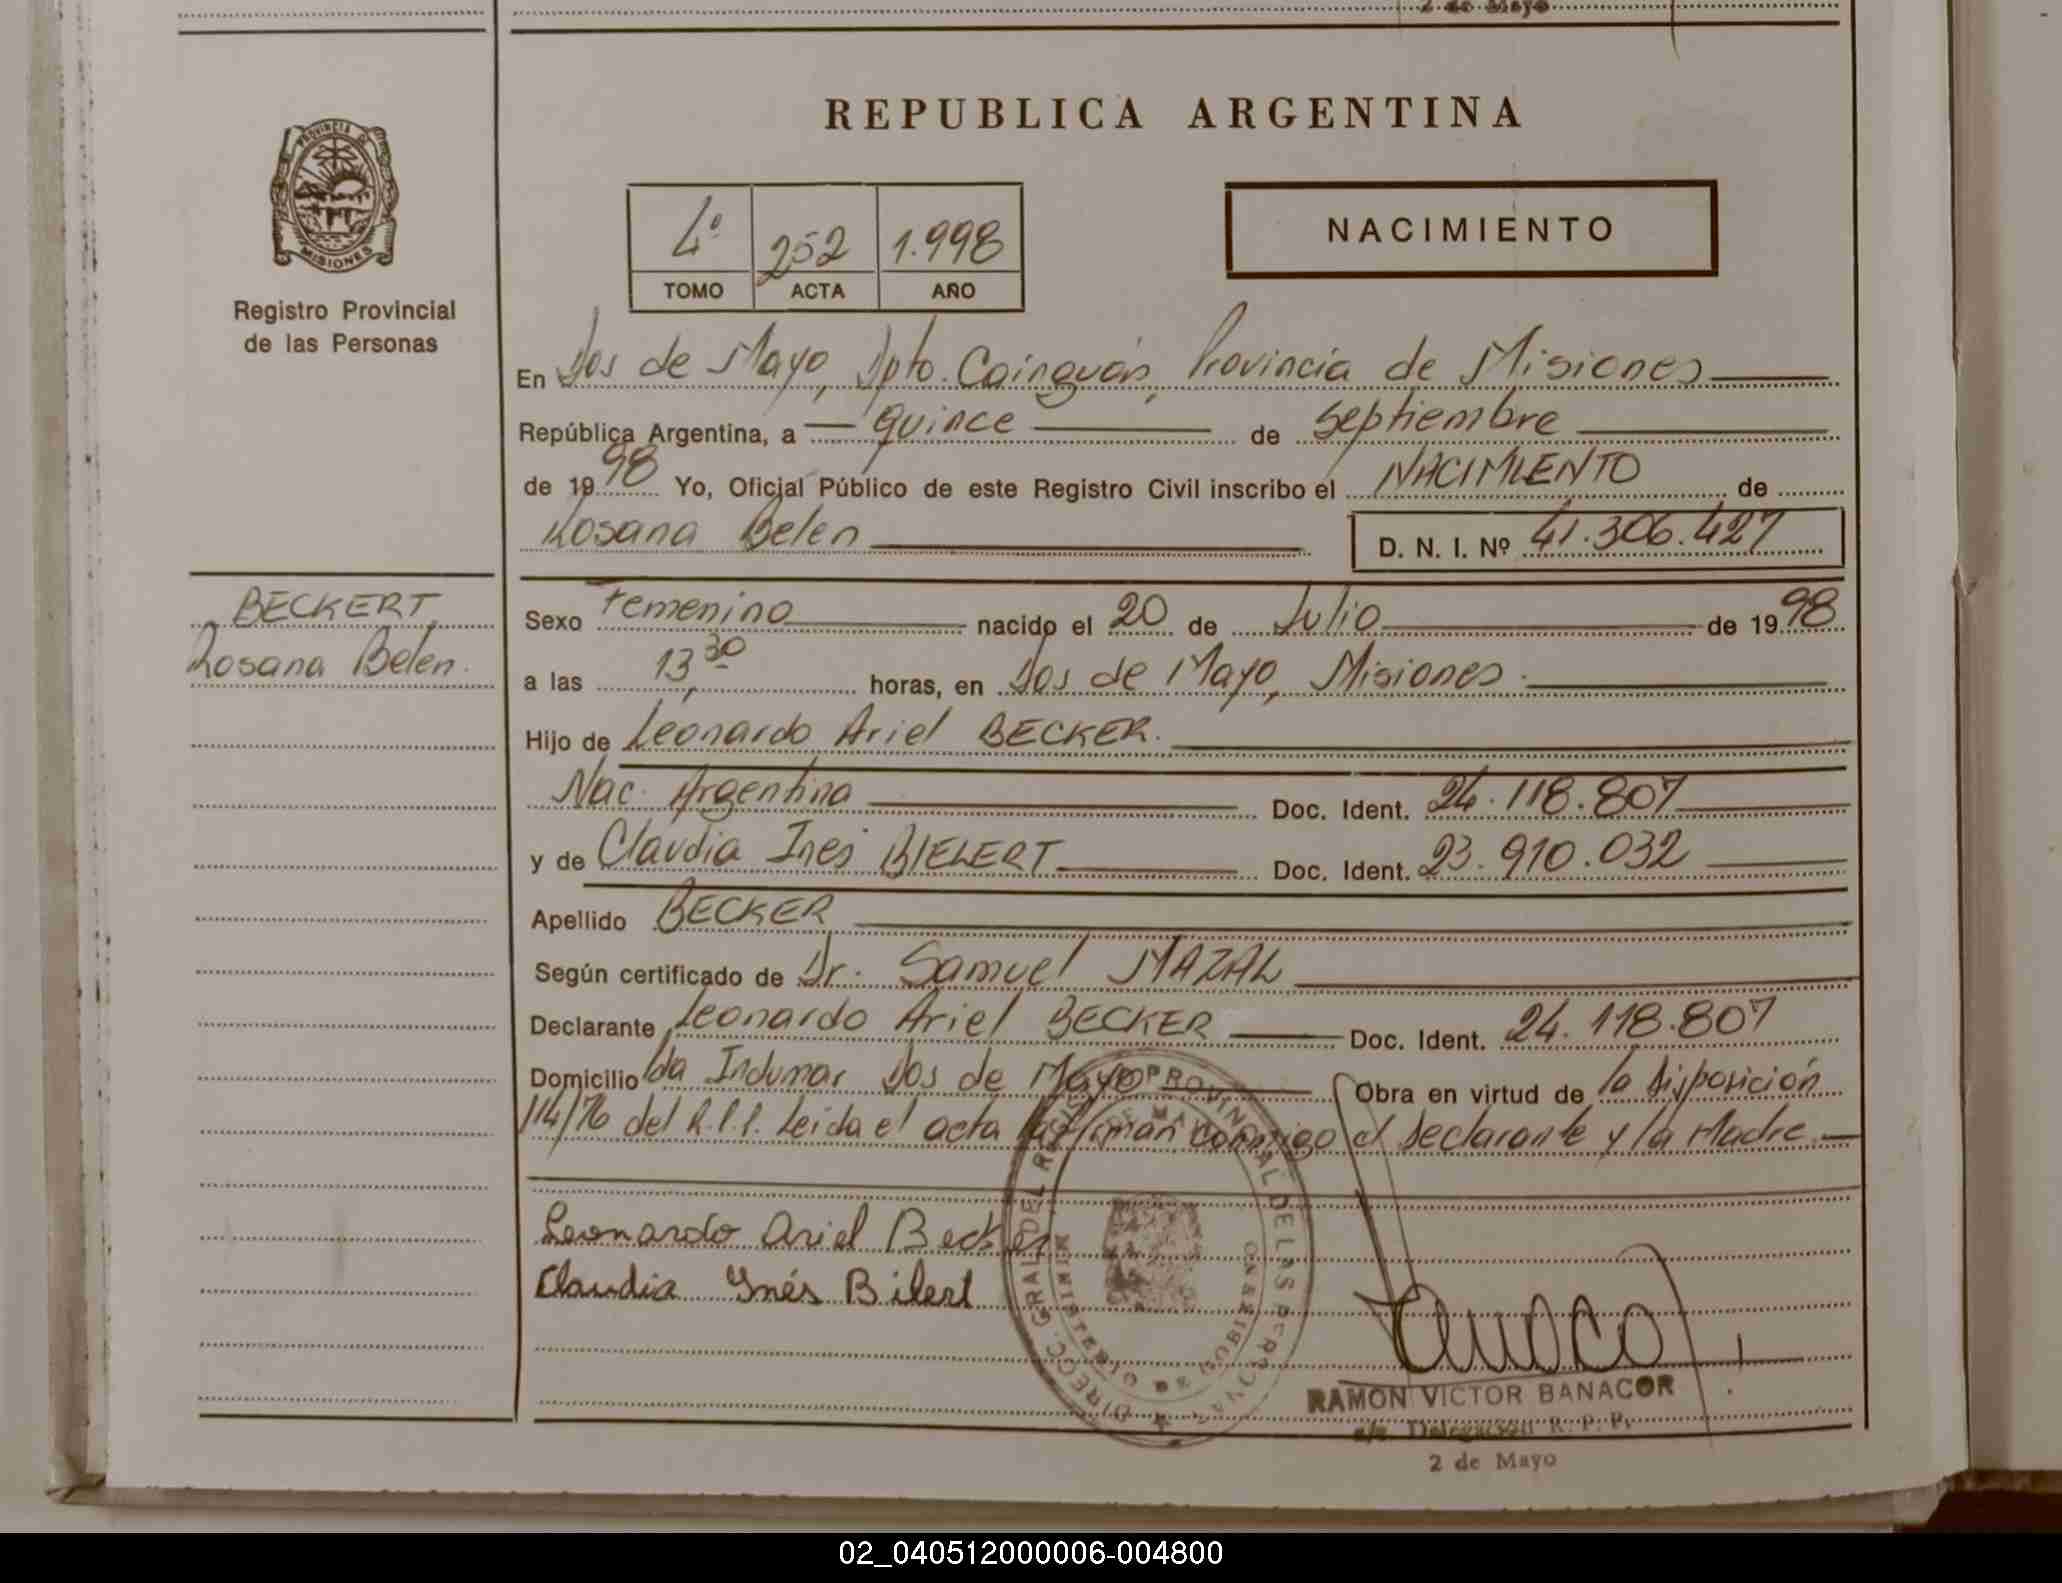 2 de Mayo
REPUBLICA ARGENTINA
PROVINCIA DE
MISIONES
Registro Provincial
de las Personas
4º 252 1.998
TOMO ACTA AÑO
NACIMIENTO
En Dos de Mayo, Dpto. Cainguás, Provincia de Misiones
República Argentina, a quince de septiembre
de 1998 Yo, Oficial Público de este Registro Civil inscribo el NACIMIENTO de
Rosana Belen D. N. I. Nº 41.306.427
BECKERT
Rosana Belen.
Sexo Femenino nacido el 20 de Julio de 1998
a las 13,30 horas, en Dos de Mayo, Misiones.
Hijo de Leonardo Ariel BECKER.
Nac. Argentina Doc. Ident. 24.118.807
y de Claudia Ines BIELERT Doc. Ident. 23.910.032
Apellido BECKER
Según certificado de Dr. Samuel MAZAL
Declarante Leonardo Ariel BECKER Doc. Ident. 24.118.807
Domicilio Indumar Dos de Mayo Obra en virtud de la disposición
114/76 del R.P.P. Leida el acta la firman conmigo el declarante y la Madre.
Leonardo Ariel Becker
Claudia Inés Bilert
DIRECC. GRAL DEL REGIST PROVINCIAL DE LAS PERSONAS
MINISTERIO DE GOBIERNO
RAMON VICTOR BANACOR
a/c Delegacion R. P. P.
2 de Mayo
02_040512000006-004800